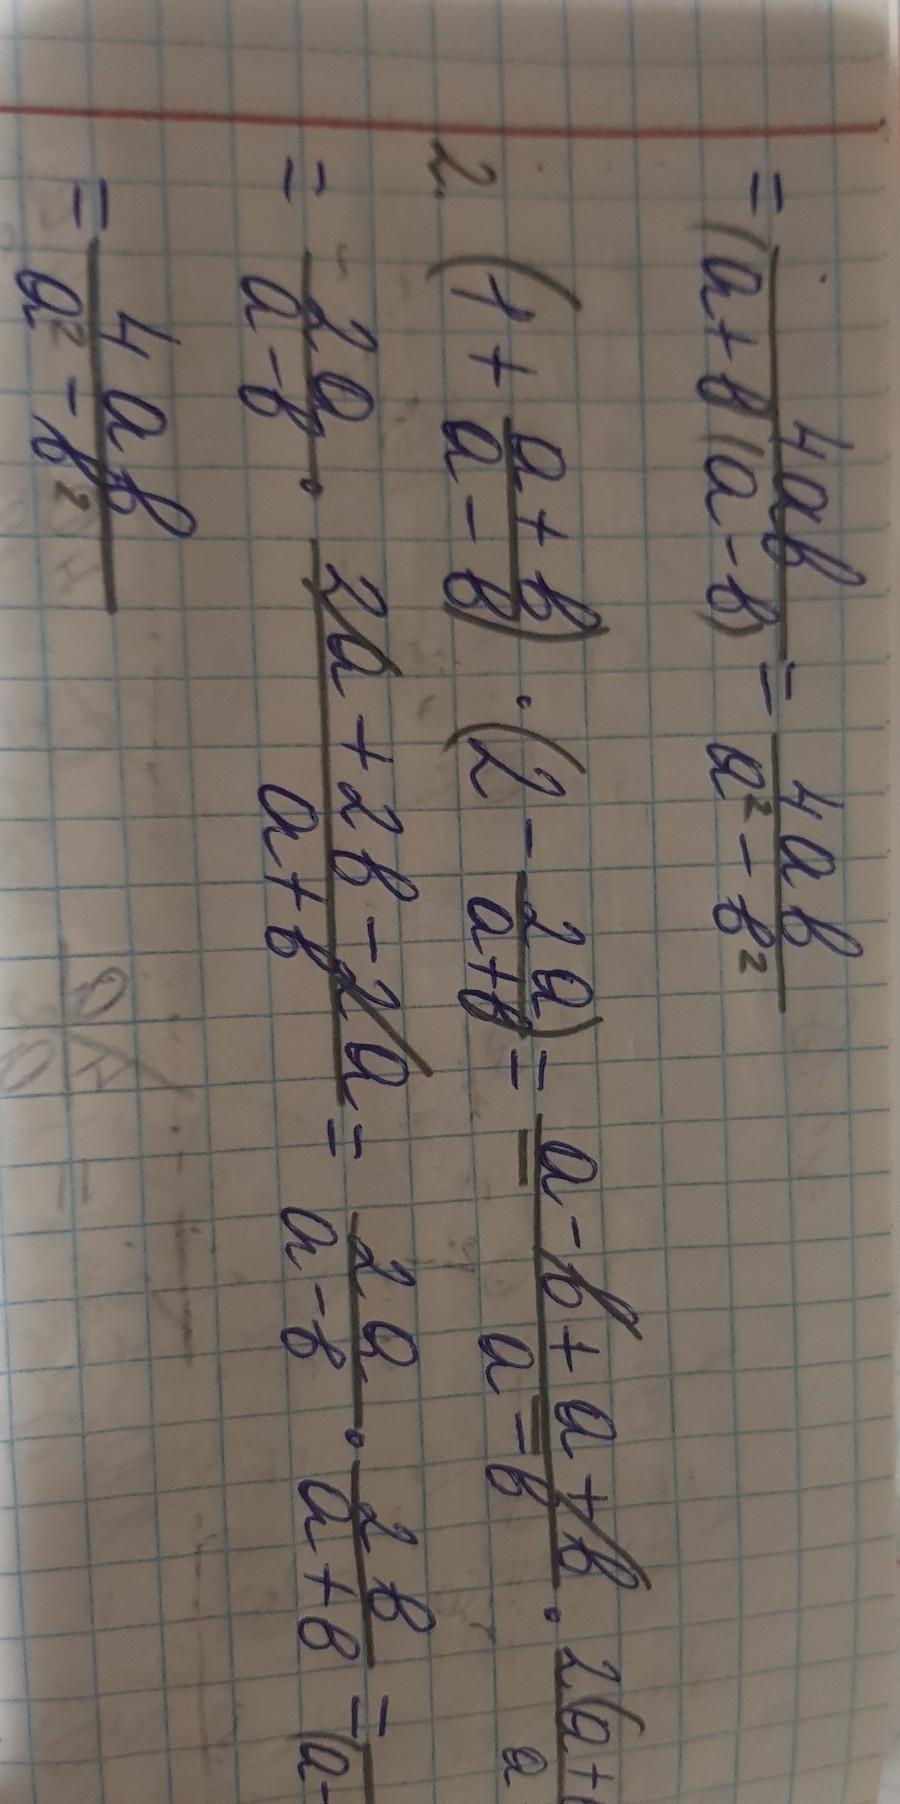 = 4ab/((a+b)(a-b)) = 4ab/(a² - b²)
2. (1 + (a+b)/(a-b)) · (2 - 2a/(a+b)) = (a-b+a+b)/(a-b) · 2(a+
= 2a/(a-b) · (2a+2b-2a)/(a+b) = 2a/(a-b) · 2b/(a+b) = (a-
= 4ab/(a² - b²)